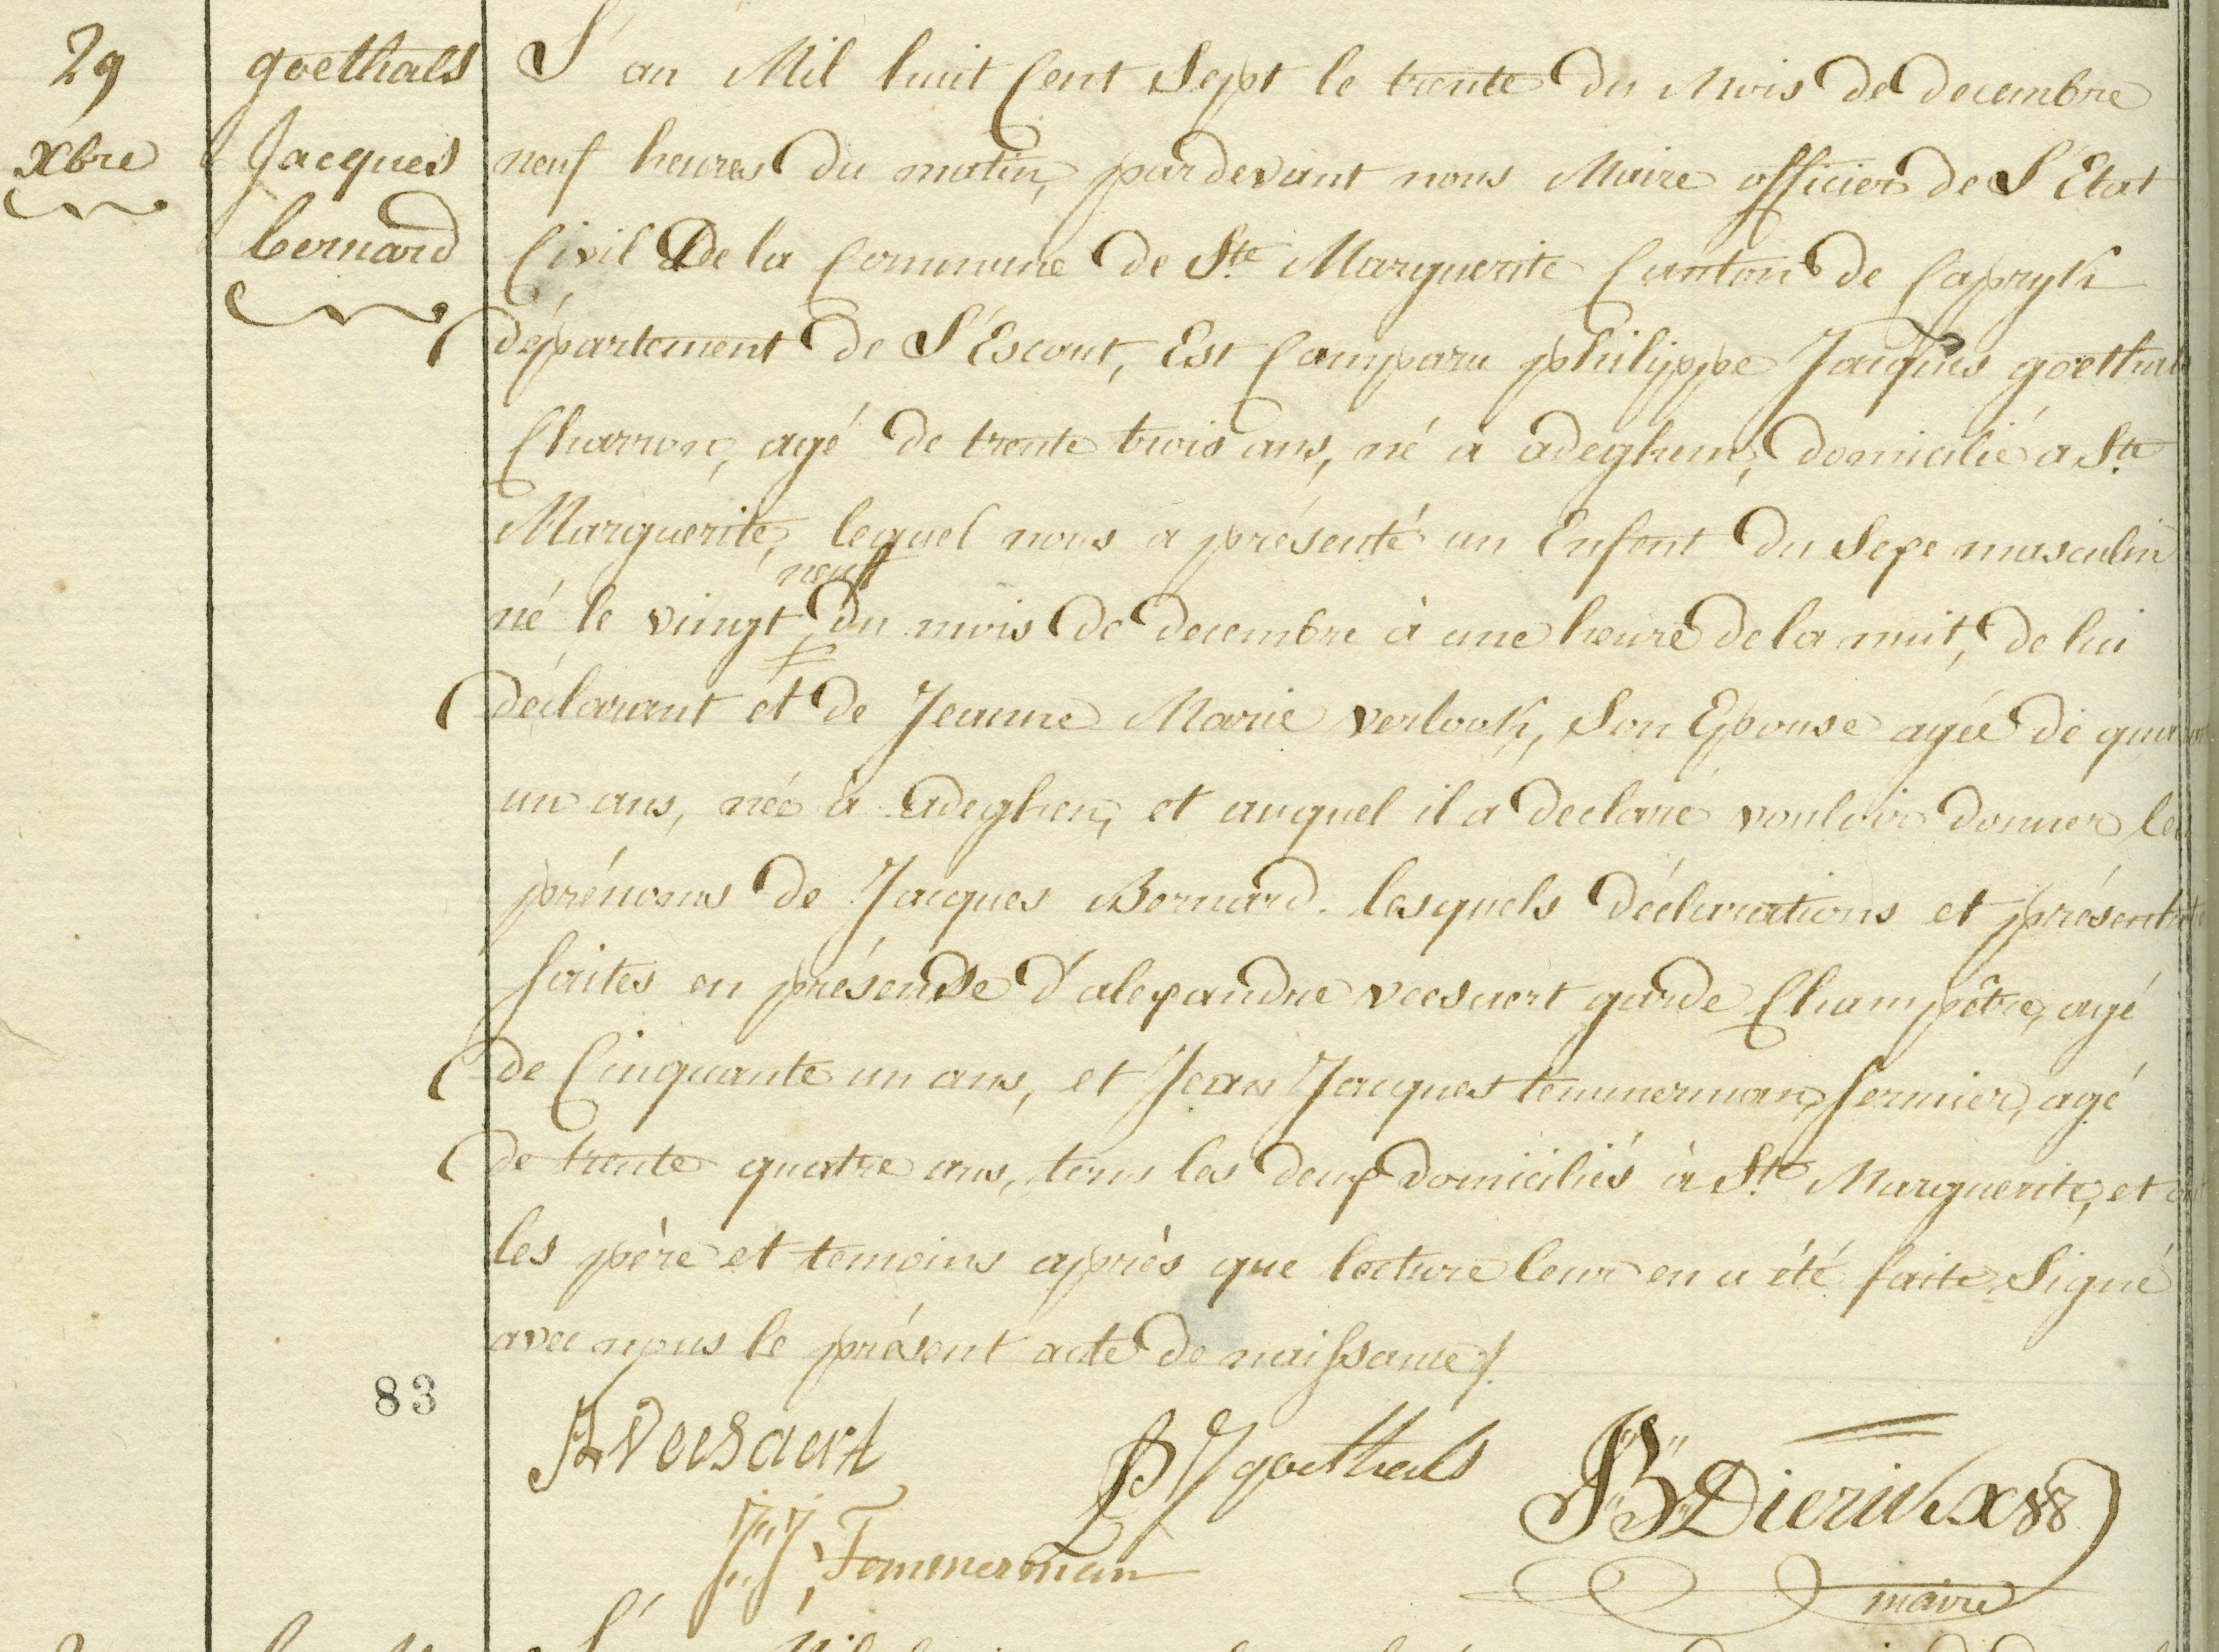 29
xbre
goethals
Jacques
bernard
L'an Mil huit Cent Sept le trente du Mois de decembre
neuf heures du matin, pardevant nous Maire officier de L'Etat
Civil de la Commune de Ste Marguerite Canton de Capryk
département de L'Escaut, Est Comparu philippe Jacques goethals
Charron, agé de trente trois ans, né a adeghem, domicilié a Ste
Marguerite, lequel nous a présenté un Enfant du Sexe masculin
neuf
né le vingt du mois de decembre à une heure de la nuit, de lui
déclarant et de Jeanne Marie verlook, Son Epouse agée de
un ans, née à adeghem, et auquel il a declaré vouloir donner les
prénoms de Jacques Bernard. lesquels déclarations et
faites en présence d'alexandre veesaert garde Champêtre, agé
de Cinquante un ans, et Jean Jacques temmerman, fermier, agé
de trente quatre ans, tous les deux domiciliés à Ste Marguerite, et ont
les père et temoins après que lecture leur en a été faite Signé
avec nous le présent acte de naissance /.
83
A Veesaert
PJ goethals
JB Dierickx
J:J: Temmerman
maire